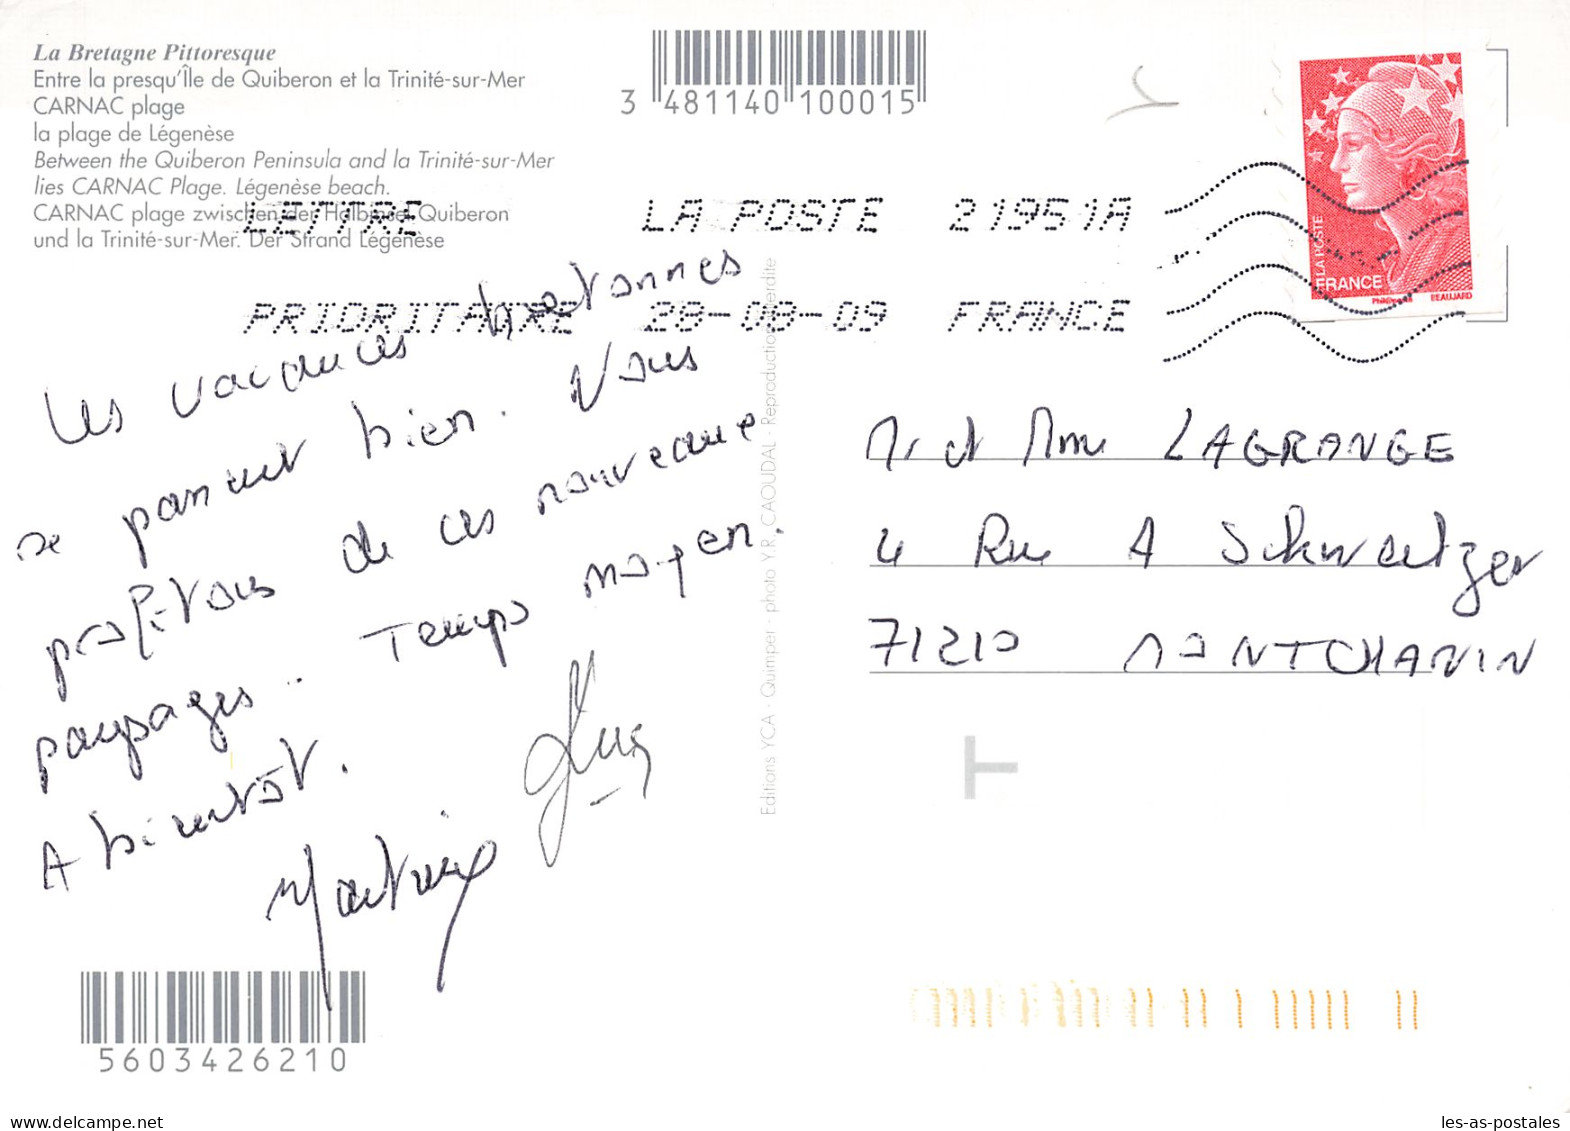 La Bretagne Pittoresque
Entre la presqu'Île de Quiberon et la Trinité-sur-Mer
CARNAC plage
la plage de Légenèse
Between the Quiberon Peninsula and la Trinité-sur-Mer
lies CARNAC Plage. Légenèse beach.
CARNAC plage zwischen der Halbinsel Quiberon
und la Trinité-sur-Mer. Der Strand Légenèse
3 481140 100015
LETTRE LA POSTE 21951A
PRIORITAIRE 28-08-09 FRANCE
LA POSTE
FRANCE
BEAUJARD
Les vacances bretonnes
se passent bien. Nous
profitons de ces nouveaux
paysages.. Temps moyen.
A bientôt.
Martine
Editions YCA - Quimper - photo Y.R. CAOUDAL - Reproduction interdite
Mr et Mme LAGRANGE
4 Rue A Schweitzer
71210 MONTCHANIN
T
5603426210
delcampe.net
les-as-postales